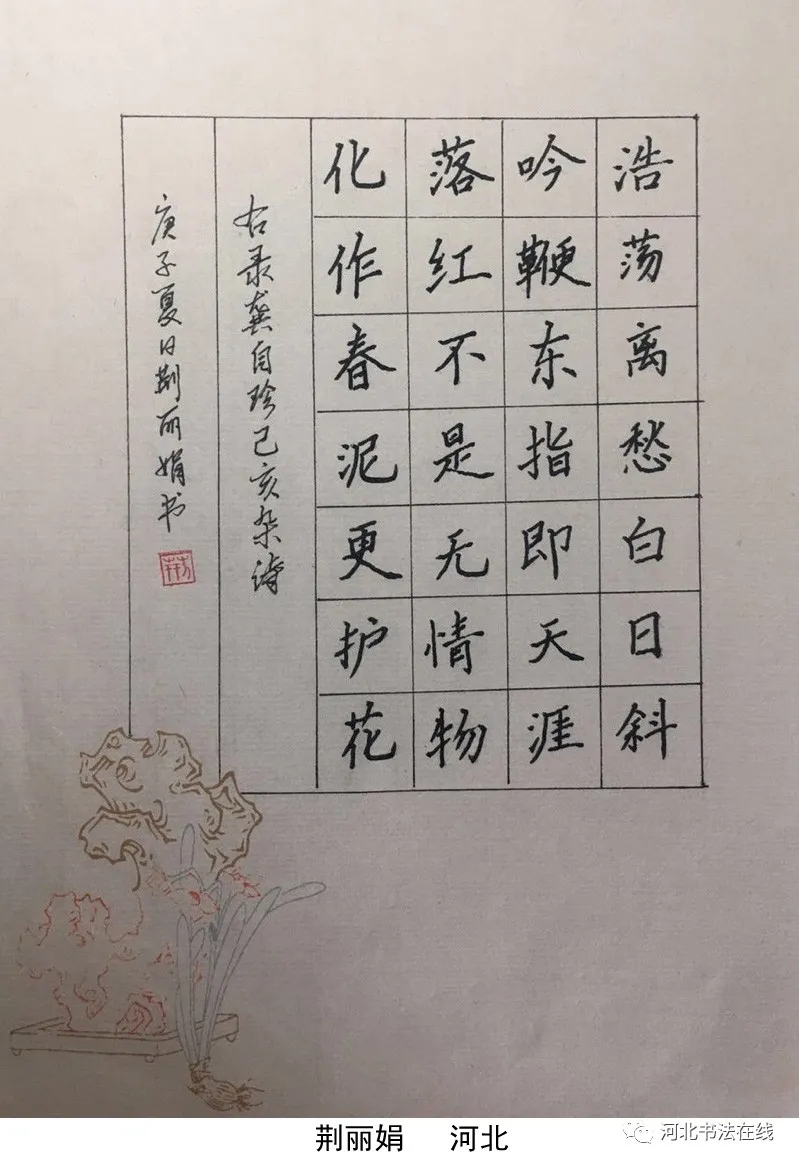 浩荡离愁白日斜
吟鞭东指即天涯
落红不是无情物
化作春泥更护花
右录龚自珍己亥杂诗
庚子夏日荆丽娟书
荆丽娟 河北
河北书法在线